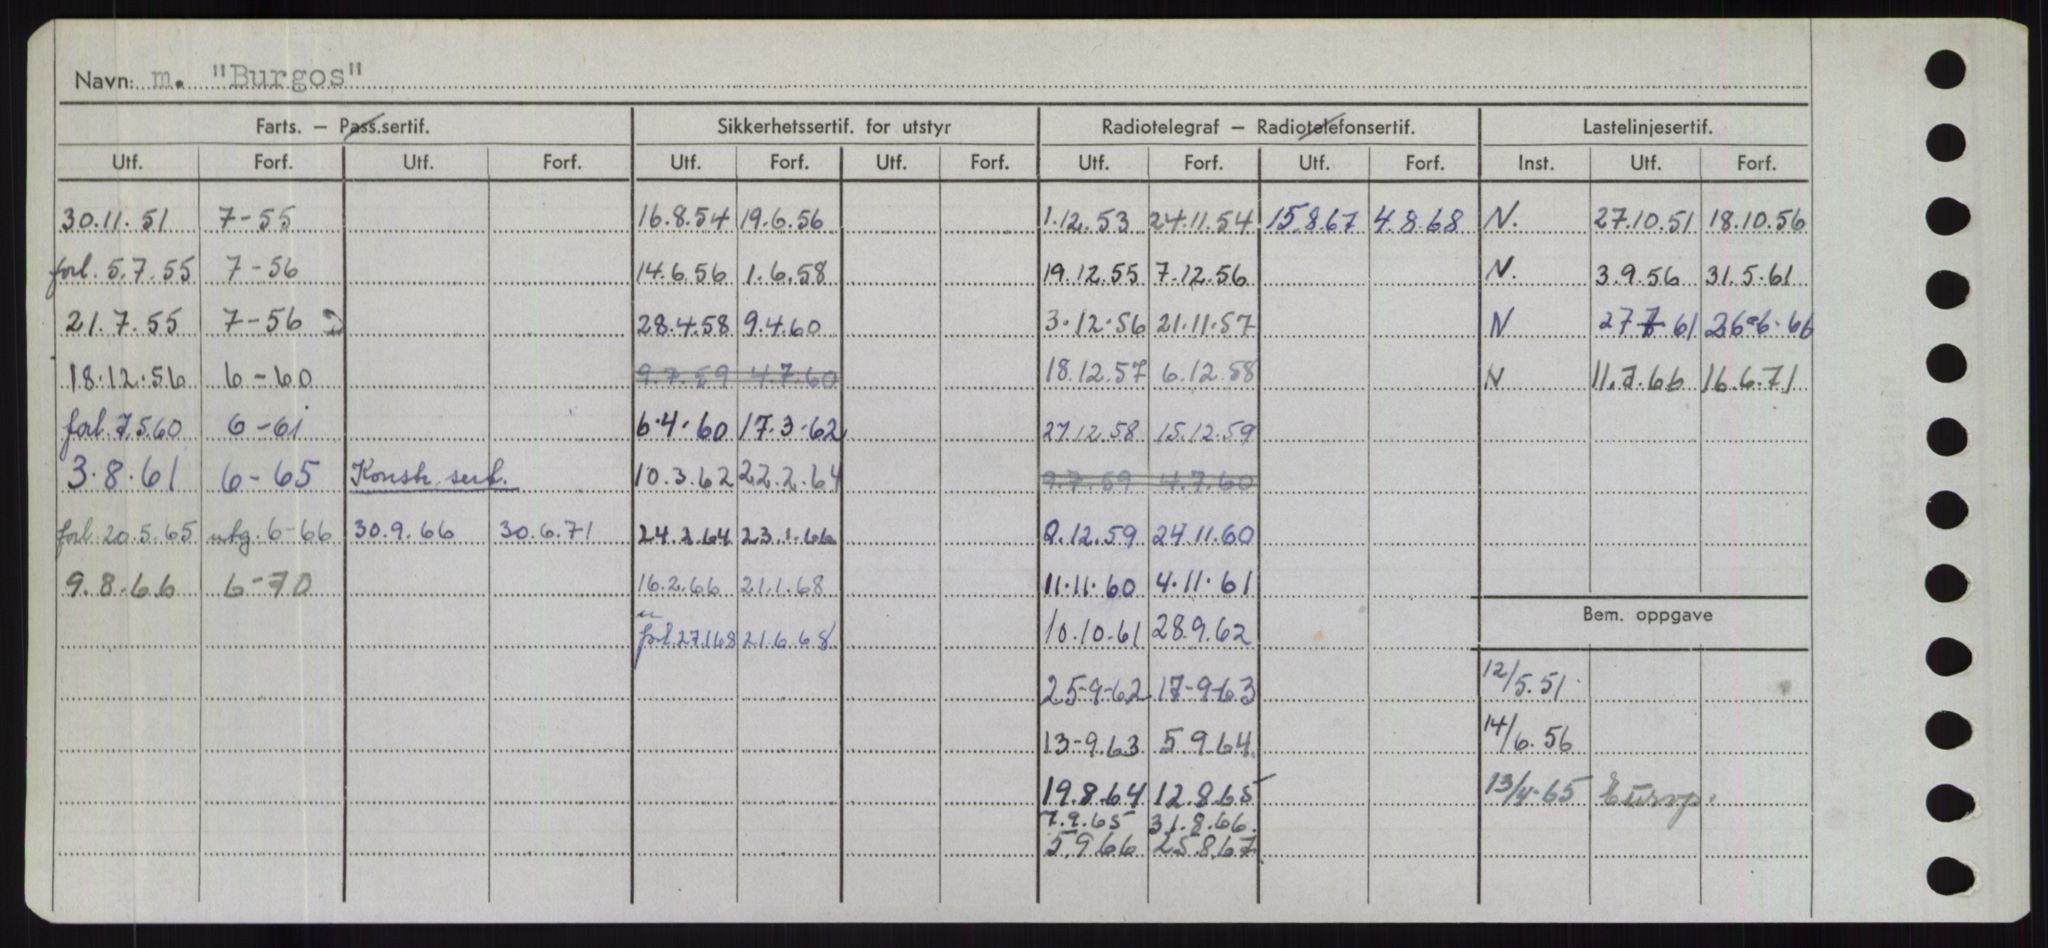 Navn: m. "Burgos"
Farts. – Pass.sertif. Sikkerhetssertif. for utstyr Radiotelegraf – Radiotelefonsertif. Lastelinjesertif.
Utf. Forf. Utf. Forf. Utf. Forf. Utf. Forf. Utf. Forf. Utf. Forf. Inst. Utf. Forf.
30.11.51 7-55 16.8.54 19.6.56 1.12.53 24.11.54 15.8.67 4.8.68 N. 27.10.51 18.10.56
forl. 5.7.55 7-56 14.6.56 1.6.58 19.12.55 7.12.56 N. 3.9.56 31.5.61
21.7.55 7-56 28.4.58 9.4.60 3.12.56 21.11.57 N 27 7 61 26-6-66
18.12.56 6-60 9.7.59 4.7.60 18.12.57 6.12.58 N 11.7.66 16.6.71
forl. 7.5.60 6-61 6.4.60 17.3.62 27.12.58 15.12.59
3.8.61 6-65 Konstr. sert. 10.3.62 22.2.64 9.7.59 4.7.60
forl. 20.5.65 utg. 6-66 30.9.66 30.6.71 24.2.64 23.1.66 12.59 24.11.60
9.8.66 6-70 16.2.66 21.1.68 11.11.60 4.11.61
Bem. oppgave
forl. 27.1.68 21.6.68 10.10.61 28.9.62
25-9-62 17-9-63 12/5.51
13-9.63 5.9.64. 14/6.56
19.8.64 12.8.65 13/4-65 Europ.
7.9.65 31.8.66.
5.9.66 25.8.67